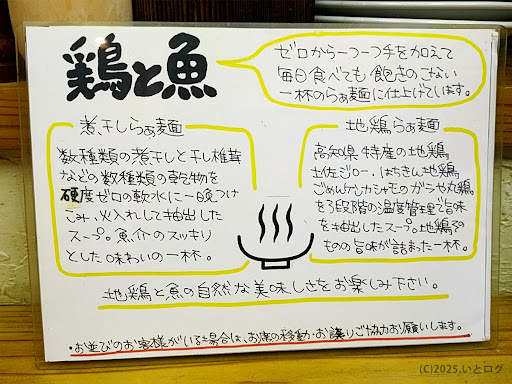 鶏と魚
ゼロから一つ一つ手を加えて
毎日食べても飽きのこない
一杯のらぁ麺に仕上げています。
煮干しらぁ麺
数種類の煮干しと干し椎茸
などの数種類の乾物を
硬度ゼロの軟水に一晩つけ
こみ、火入れして抽出した
スープ。魚介のスッキリ
とした味わいの一杯。
地鶏らぁ麺
高知県特産の地鶏
土佐ジロー、はちきん地鶏
ごめんケンカシャモのガラや丸鶏
を3段階の温度管理で旨味
を抽出したスープ。地鶏その
ものの旨味が詰まった一杯。
地鶏と魚の自然な美味しさをお楽しみ下さい。
・お並びのお客様がいる場合は、お席の移動・お譲りご協力お願いします。
(C)2025.いとログ